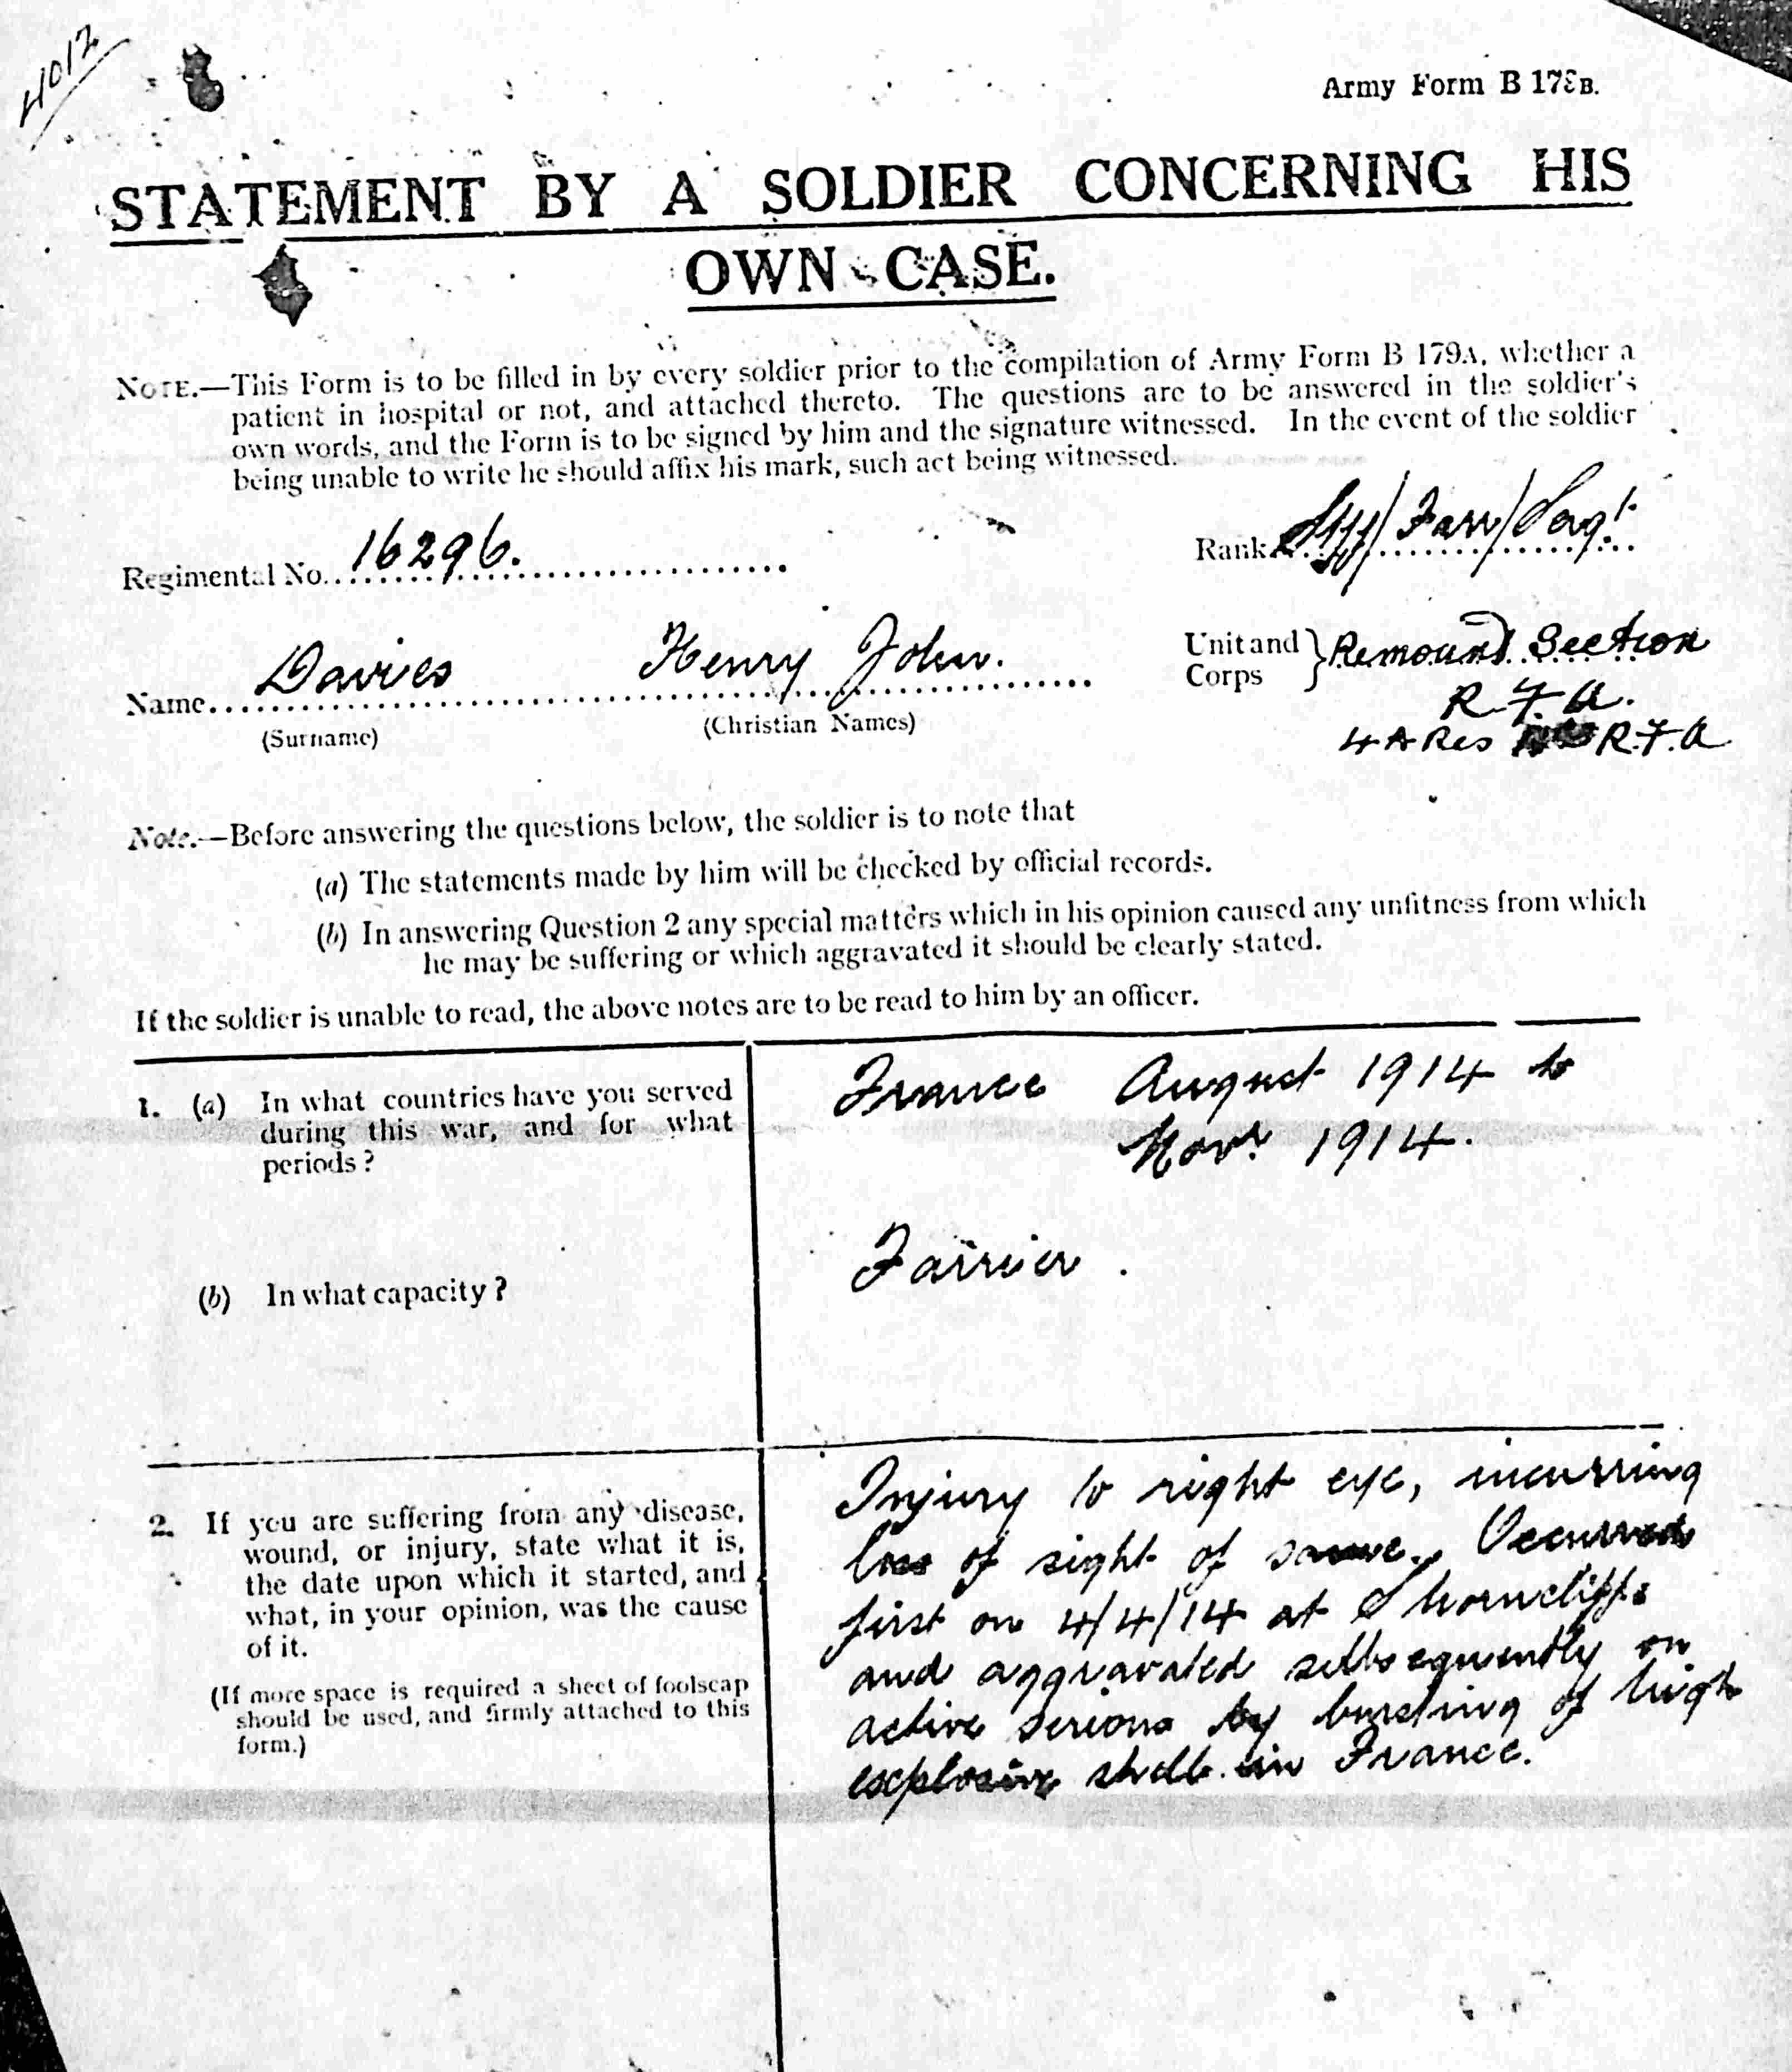 4012
Army Form B 179B.
STATEMENT BY A SOLDIER CONCERNING HIS
OWN CASE.
NOTE.—This Form is to be filled in by every soldier prior to the compilation of Army Form B 179A, whether a
patient in hospital or not, and attached thereto. The questions are to be answered in the soldier's
own words, and the Form is to be signed by him and the signature witnessed. In the event of the soldier
being unable to write he should affix his mark, such act being witnessed.
Regimental No. 16296.
Rank Farr/Sergt.
Name Davies Henry John.
(Surname) (Christian Names)
Unit and Corps } Remount Section
R.F.A.
4 A Res R.F.A
Note.—Before answering the questions below, the soldier is to note that
(a) The statements made by him will be checked by official records.
(b) In answering Question 2 any special matters which in his opinion caused any unfitness from which
he may be suffering or which aggravated it should be clearly stated.
If the soldier is unable to read, the above notes are to be read to him by an officer.
1. (a) In what countries have you served
during this war, and for what
periods?
France August 1914 to
Novr 1914.
(b) In what capacity?
Farrier.
2. If you are suffering from any disease,
wound, or injury, state what it is,
the date upon which it started, and
what, in your opinion, was the cause
of it.
(If more space is required a sheet of foolscap
should be used, and firmly attached to this
form.)
Injury to right eye, incurring
loss of sight of same. Occurred
first on 4/4/14 at Shorncliffe
and aggravated subsequently on
active serions by bursting of high
explosive shell in France.